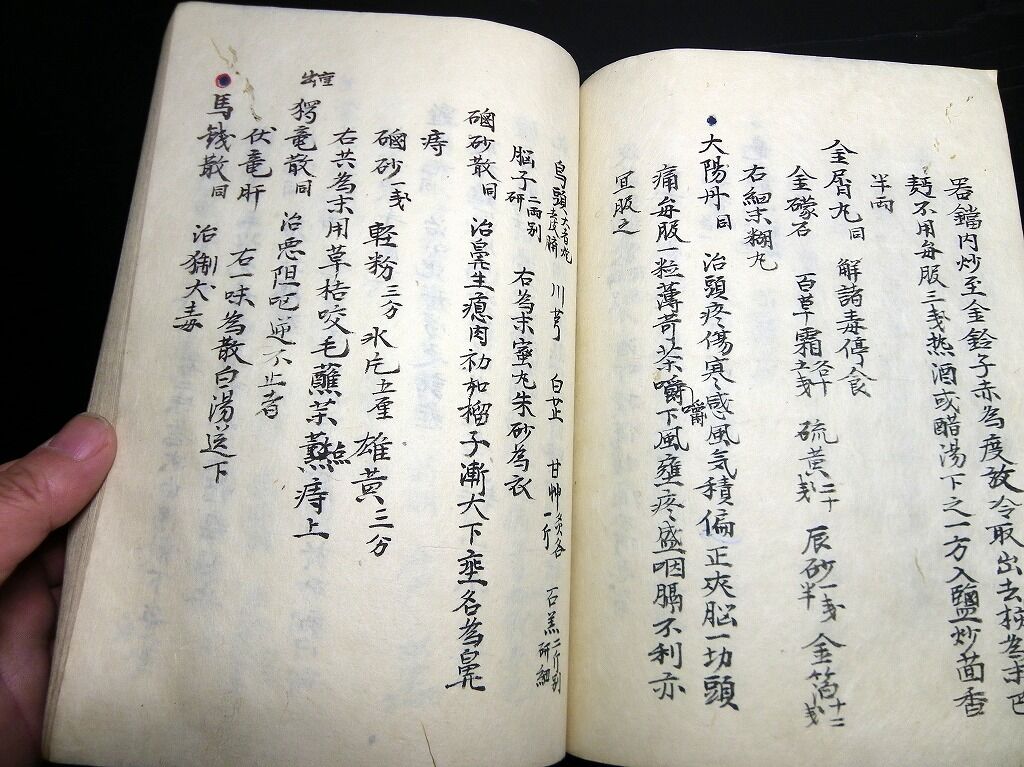 器鐺内炒至金鈴子赤為度放冷取出去核為末巴
豆不用每服三戔热酒或醋湯下之一方入鹽炒茴香
半両
金屑丸同 解諸毒停食
金礞石 百草霜各十五戔 硫黄二十戔 辰砂一戔半 金箔十二戔
右細末糊丸
大陽丹同 治頭疼傷寒感風気積偏正夾脳一切頭
痛每服一粒薄荷茶嚼下風壅疼盛咽膈不利亦
嚼
宜服之
烏頭大者炮去皮臍 川芎 白芷 甘艸炙各一斤 石羔二斤別研細
脳子二両別研 右為末蜜丸朱砂為衣
硇砂散同 治鼻生瘜肉初如榴子漸大下垂名為鼻
痔
硇砂一戔 軽粉三分 氷片五厘 雄黄三分
右共為末用草桔咬毛蘸茶薫痔上
点
出
䆿竜散同 治悪阻吃逆不止者
伏竜肝 右一味為散白湯送下
馬銭散同 治猘犬毒